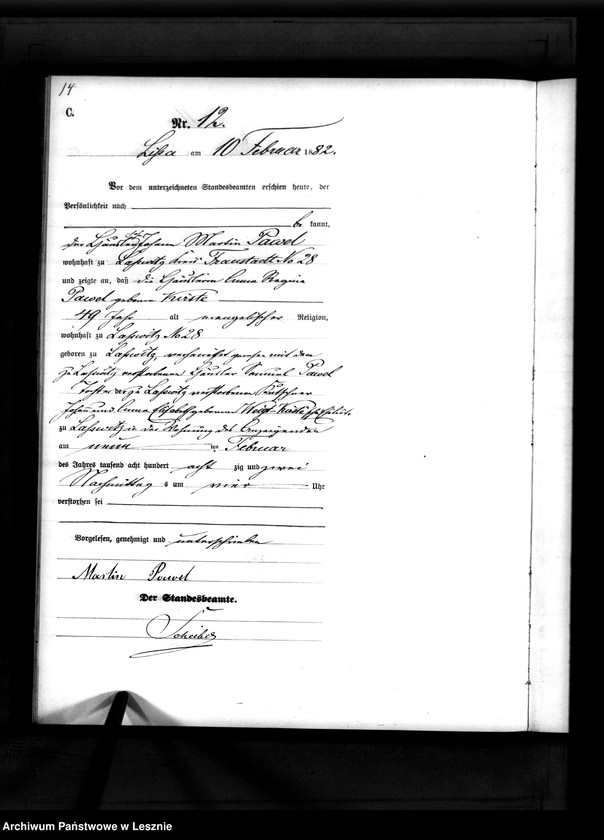 14
C.
Nr. 12.
Lissa am 10 Februar 1882.
Vor dem unterzeichneten Standesbeamten erschien heute, der
Persönlichkeit nach
be kannt,
der Häuslersohn Martin Pawel
wohnhaft zu Laßwitz Kreis Fraustadt No 28
und zeigte an, daß die Häuslerin Anna Regina
Pawel geborene
49 Jahr alt evangelischer Religion,
wohnhaft zu Laßwitz No 28
geboren zu Laßwitz, verheirathet gewesen mit dem
zu Laßwitz verstorbenen Häusler Samuel Pawel
Tochter der zu Laßwitz verstorbenen
Johann und Anna Elisabeth geborenen
zu Laßwitz in der Wohnung des Anzeigenden
am neun ten Februar
des Jahres tausend acht hundert acht zig und zwei
Nachmittag s um vier Uhr
verstorben sei
Vorgelesen, genehmigt und unterschrieben
Martin Pawel
Der Standesbeamte.
Archiwum Państwowe w Lesznie